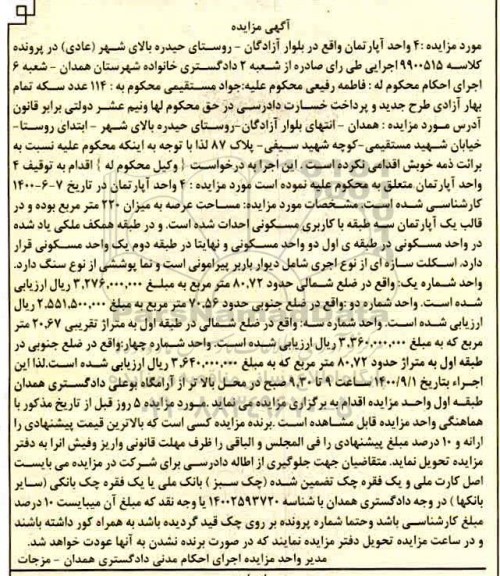 آگهی مزایده
مورد مزایده :۴ واحد آپارتمان واقع در بلوار آزادگان - روستای حیدره بالای شهر (عادی) در پرونده
کلاسه ۹۹۰۰۵۱۵ اجرایی طی رای صادره از شعبه ۲ دادگستری خانواده شهرستان همدان - شعبه ۶
اجرای احکام محکوم له : فاطمه رفیعی محکوم علیه:جواد مستقیمی محکوم به : ۱۱۴ عدد سکه تمام
بهار آزادی طرح جدید و پرداخت خسارت دادرسی در حق محکوم لها ونیم عشر دولتی برابر قانون
آدرس مورد مزایده : همدان - انتهای بلوار آزادگان-روستای حیدره بالای شهر - ابتدای روستا-
خیابان شهید مستقیمی-کوچه شهید سیفی- پلاک ۸۷ لذا با توجه به اینکه محکوم علیه نسبت به
برائت ذمه خویش اقدامی نکرده است . این اجرا به درخواست { وکیل محکوم له } اقدام به توقیف ۴
واحد آپارتمان متعلق به محکوم علیه نموده است مورد مزایده : ۴ واحد آپارتمان در تاریخ ۷-۶-۱۴۰۰
کارشناسی شده است. مشخصات مورد مزایده: مساحت عرصه به میزان ۲۲۰ متر مربع بوده و در
قالب یک آپارتمان سه طبقه با کاربری مسکونی احداث شده است. و در طبقه همکف ملکی یاد شده
در واحد مسکونی در طبقه ی اول دو واحد مسکونی و نهایتا در طبقه دوم یک واحد مسکونی قرار
دارد. اسکلت سازه ای از نوع اجری شامل دیوار باربر پیرامونی است و تما پوششی از نوع سنگ دارد.
واحد شماره یک: واقع در ضلع شمالی حدود ۸۰.۷۲ متر مربع به مبلغ ۳.۲۷۶.۰۰۰.۰۰۰ ریال ارزیابی
شده است. واحد شماره دو :واقع در ضلع جنوبی حدود ۷۰.۵۶ متر مربع به مبلغ ۲.۵۵۱.۵۰۰.۰۰۰ ریال
ارزیابی شده است. واحد شماره سه: واقع در ضلع شمالی در طبقه اول به متراژ تقریبی ۲۰.۶۷ متر
مربع که به مبلغ ۳.۳۶۰.۰۰۰.۰۰۰ ریال ارزیابی شده است. واحد شماره چهار:واقع در ضلع جنوبی در
طبقه اول به متراژ حدود ۸۰.۷۲ متر مربع که به مبلغ ۳.۶۴۰.۰۰۰.۰۰۰ ریال ارزیابی شده است.لذا این
اجراء بتاریخ ۱۴۰۰/۹/۱ ساعت ۹ تا ۹.۳۰ صبح در محل بالا تر از آرامگاه بوعلی دادگستری همدان
طبقه اول واحد مزایده اقدام به برگزاری مزایده می نماید .مورد مزایده ۵ روز قبل از تاریخ مذکور با
هماهنگی واحد مزایده قابل مشاهده است .برنده مزایده کسی است که بالاترین قیمت پیشنهادی را
ارائه و ۱۰ درصد مبلغ پیشنهادی را فی المجلس و الباقی را ظرف مهلت قانونی واریز وفیش انرا به دفتر
مزایده تحویل نماید. متقاضیان جهت جلوگیری از اطاله دادرسی برای شرکت در مزایده می بایست
اصل کارت ملی و یک فقره چک تضمین شده (چک سبز ) بانک ملی یا یک فقره چک بانکی (سایر
بانکها ) در وجه دادگستری همدان با شناسه ۱۴۰۰۲۵۹۳۷۲۰ یا وجه نقد که مبلغ آن میبایست ۱۰ درصد
مبلغ کارشناسی باشد وحتما شماره پرونده بر روی چک قید گردیده باشد به همراه کور داشته باشند
و در ساعت مزایده تحویل دفتر مزایده نمایند که در صورت برنده نشدن به آنها عودت خواهد شد.
مدیر واحد مزایده اجرای احکام مدنی دادگستری همدان - مزجات